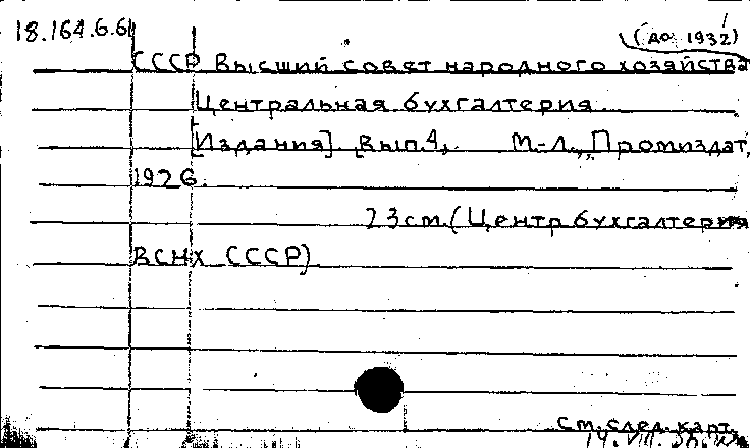 18.164.6.6
(до 1932)
СССР Высший совет народного хозяйства
Центральная бухгалтерия
[Издания]. Вып.4, М-Л., "Промиздат,
1926.
23см. (Центр бухгалтерия
ВСНХ СССР)
См. след. карт.